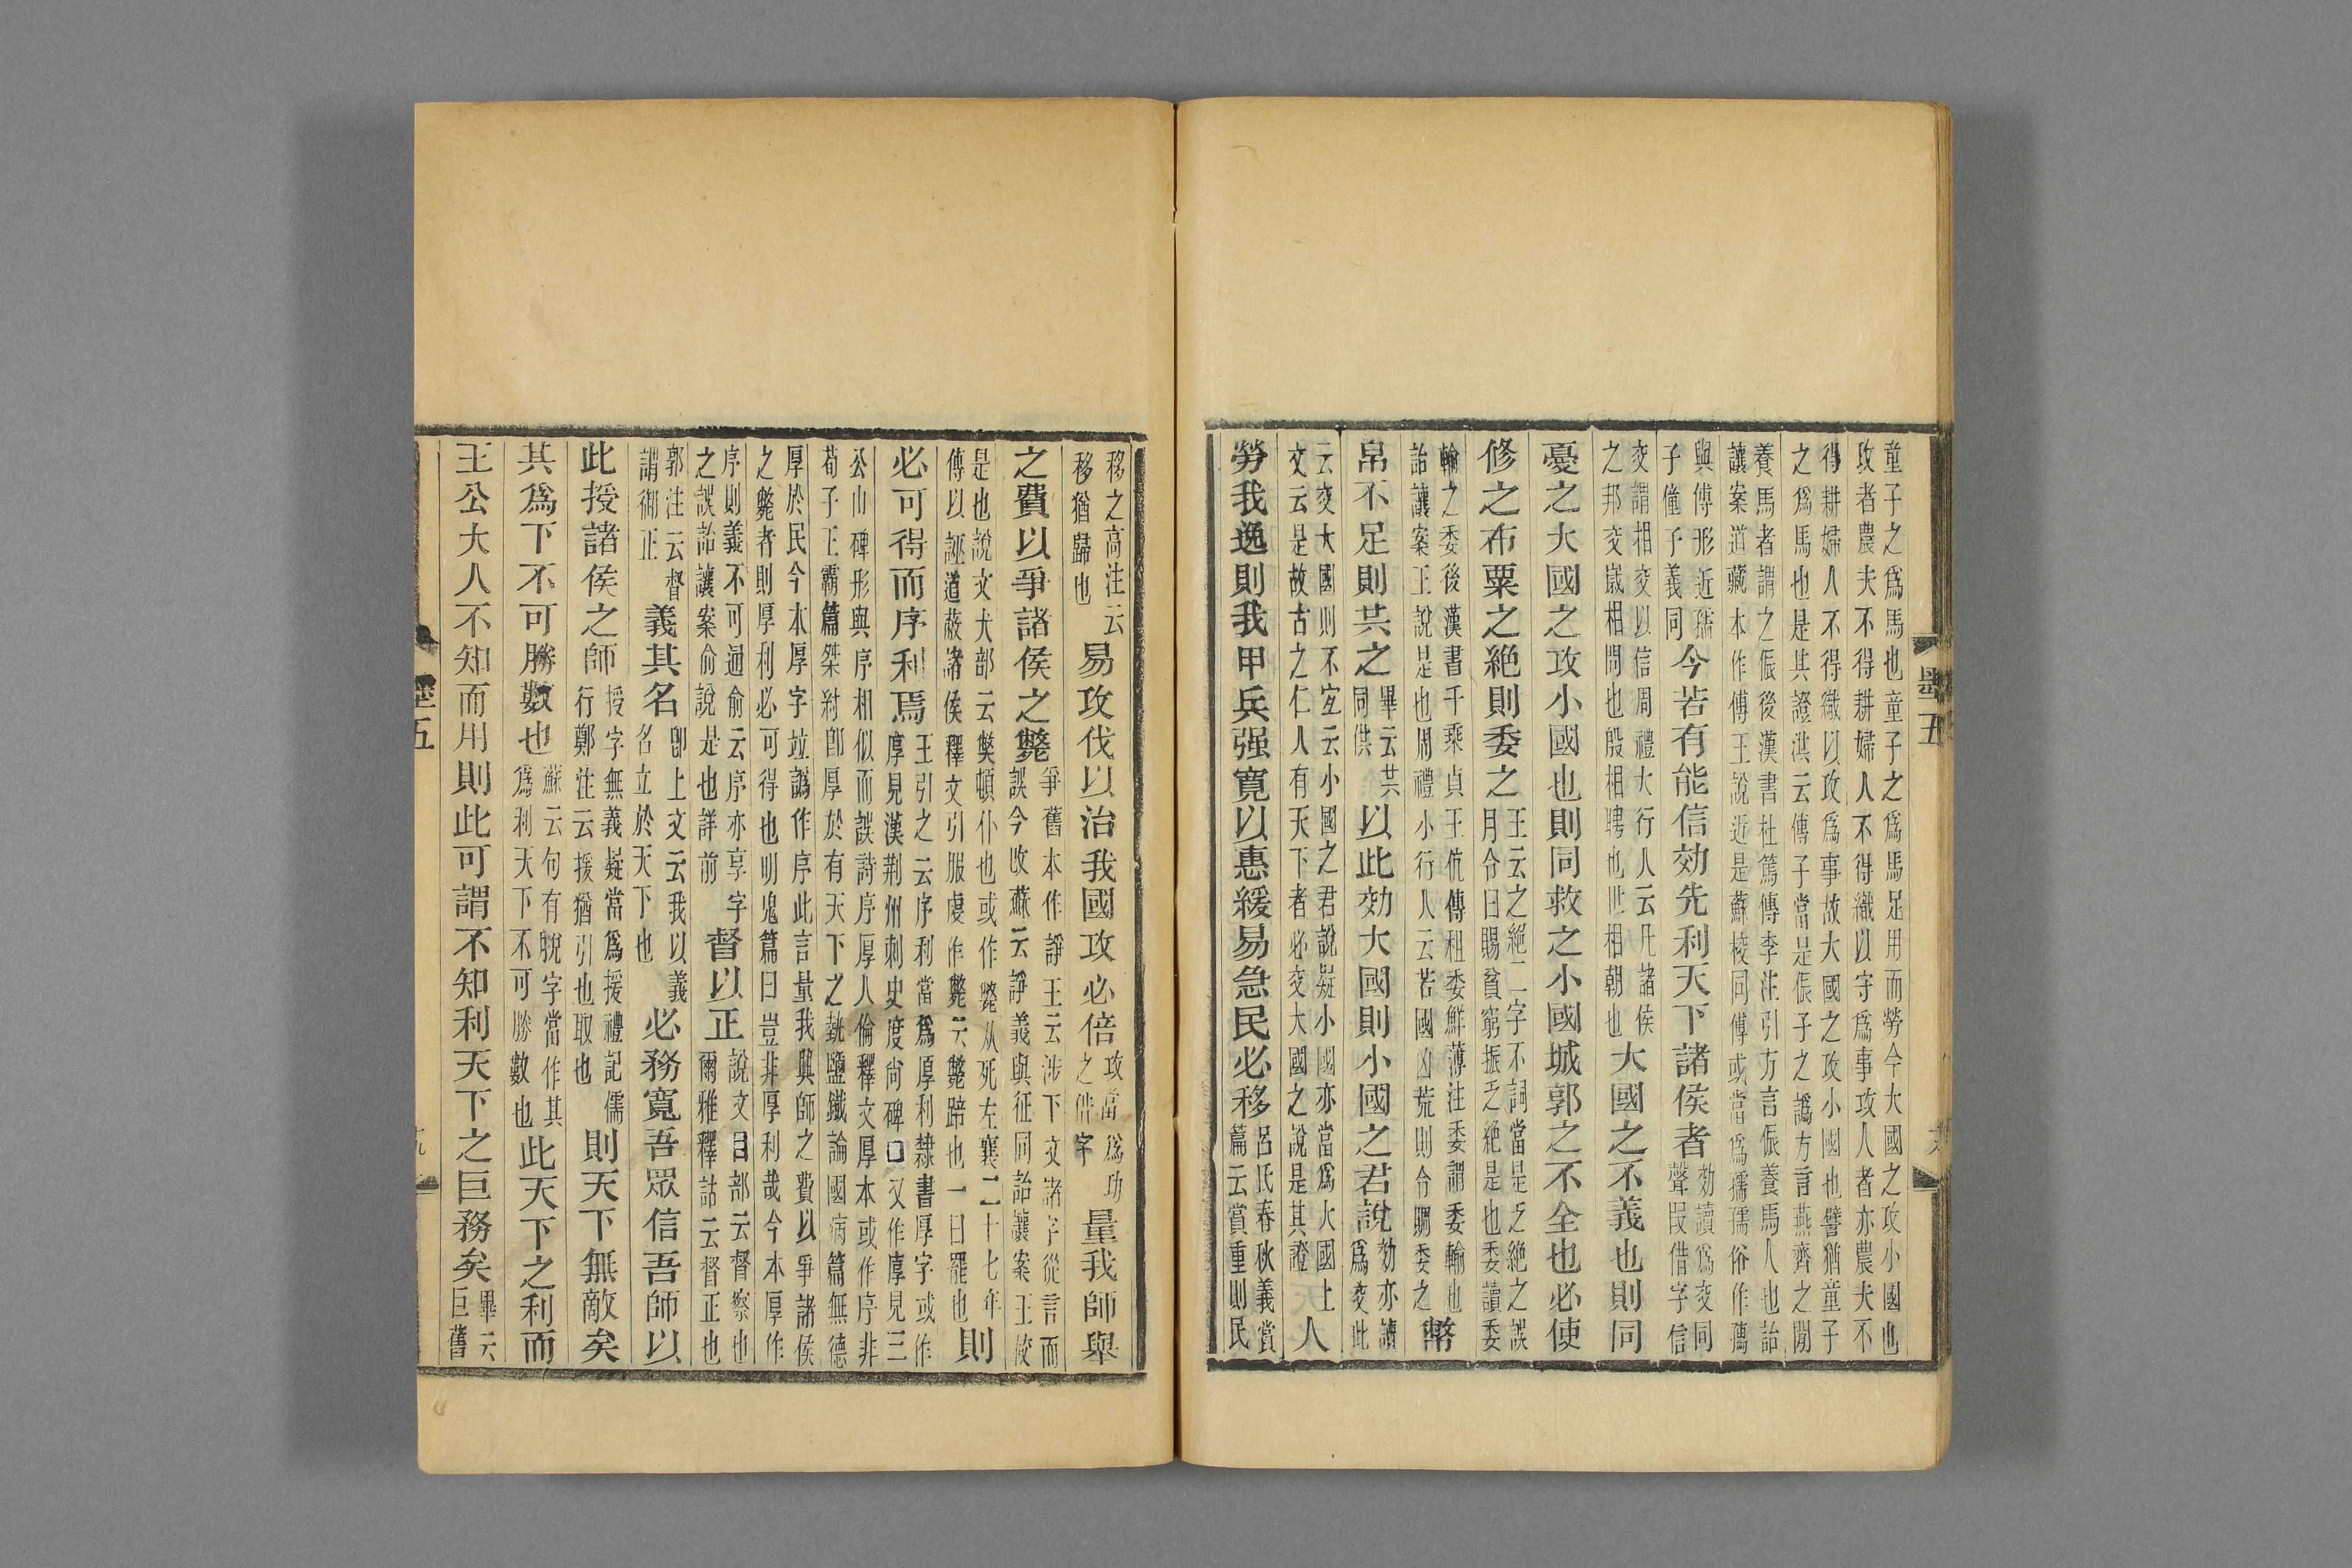 童子之爲馬也童子之爲馬足用而勞今大國之攻小國也
攻者農夫不得耕婦人不得織以守爲事攻人者亦農夫不
得耕婦人不得織以攻爲事故大國之攻小國也譬猶童子
之爲馬也是其證洪云傳子當是倀子之譌方言燕齊之閒
養馬者謂之倀後漢書杜篤傳李注引方言倀養馬人也詒
讓案道藏本作傅王說近是蘇校同傅或當爲孺孺俗作𡦗
與傅形近孺
子僮子義同
今若有能信効先利天下諸侯者
効讀爲交同
聲叚借字信
交謂相交以信周禮大行人云凡諸侯
之邦交歲相問也殷相聘也世相朝也
大國之不義也則同
憂之大國之攻小國也則同救之小國城郭之不全也必使
修之布粟之絕則委之
王云之絕二字不詞當是乏絕之誤
月令曰賜貧窮振乏絕是也委讀委
輸之委後漢書千乘貞王伉傳租委鮮薄注委謂委輸也
詒讓案王說是也周禮小行人云若國凶荒則令賙委之
幣
帛不足則共之
畢云共
同供
以此効大國則小國之君說
効亦讀
爲交此
云交大國則不宐云小國之君說疑小國亦當爲大國上
文云是故古之仁人有天下者必交大國之說是其證
人
勞我逸則我甲兵强寬以惠緩易急民必移
呂氏春秋義賞
篇云賞重則民
墨五
移之高注云
移猶歸也
易攻伐以治我國攻必倍
攻當爲功
之借字
量我師舉
之費以爭諸侯之斃
爭舊本作諍王云涉下文諸字從言而
誤今改蘇云諍義與征同詒讓案王校
是也說文犬部云獘頓仆也或作斃从死左襄二十七年
傳以誣道蔽諸侯釋文引服虔作斃云斃踣也一曰罷也
則
必可得而序利焉
王引之云序利當爲厚利隸書厚字或作
厚見漢荆州刺史度尚碑□又作厚見三
公山碑形與序相似而誤詩序厚人倫釋文厚本或作序非
荀子王霸篇桀紂卽厚於有天下之埶鹽鐵論國病篇無德
厚於民今本厚字竝譌作序此言量我興師之費以爭諸侯
之斃者則厚利必可得也明鬼篇曰豈非厚利哉今本厚作
序則義不可通俞云序亦享字
之誤詒讓案俞說是也詳前
督以正
說文目部云督察也
爾雅釋詁云督正也
郭注云督
謂御正
義其名
卽上文云我以義
名立於天下也
必務寬吾眾信吾師以
此授諸侯之師
授字無義疑當爲援禮記儒
行鄭注云援猶引也取也
則天下無敵矣
其爲下不可勝數也
蘇云句有脫字當作其
爲利天下不可勝數也
此天下之利而
王公大人不知而用則此可謂不知利天下之巨務矣
畢云
巨舊
五